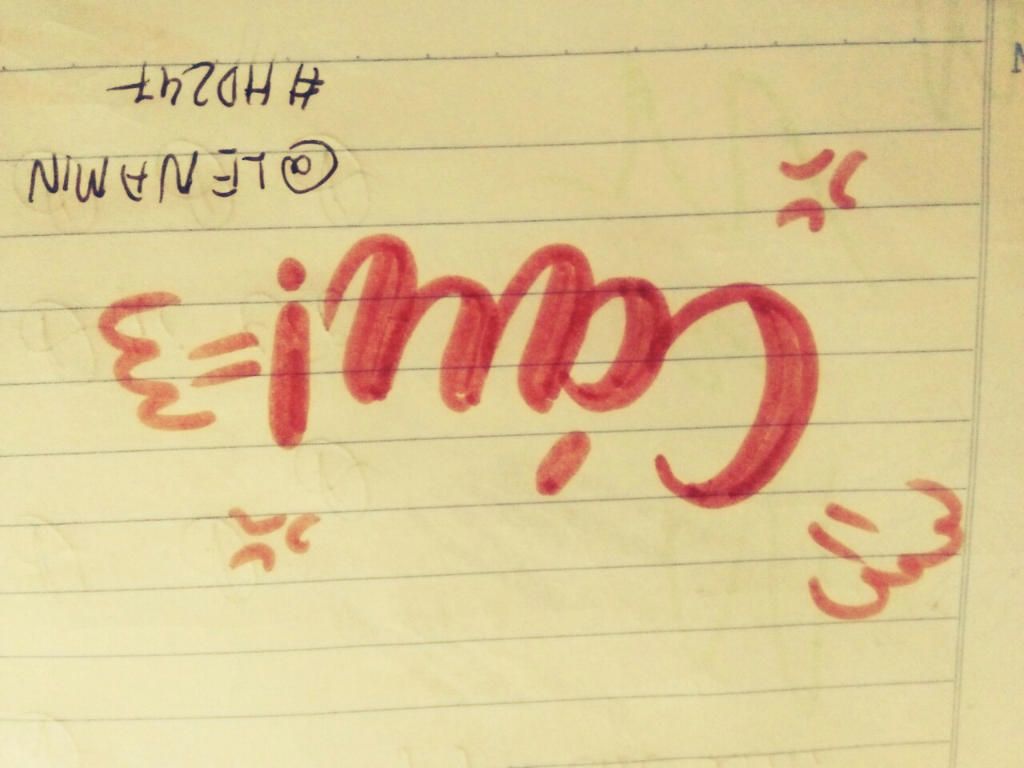 Cáu!
@LENAMIN
#HD247